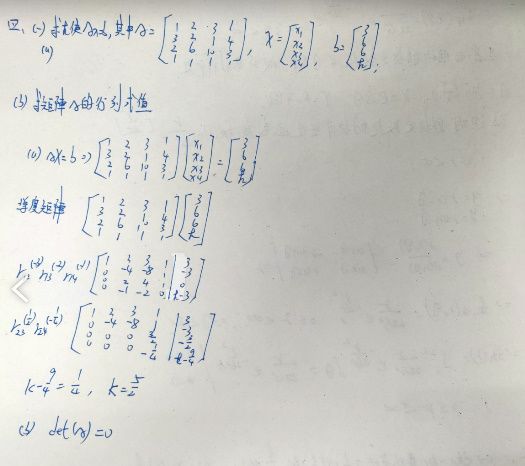 四、(一) 求k使Ax=b,其中A=[1 2 3 1; 3 2 1 4; 2 6 10 3; 1 1 1 3], x=[x1; x2; x3; x4], b=[3; 6; 6; k],
(a)
(b) 求矩阵A的行列式值
(a) Ax=b ⇒ [1 2 3 1; 3 2 1 4; 2 6 10 3; 1 1 1 1][x1; x2; x3; x4]=[3; 6; 6; k]
矩阵 [1 2 3 1; 3 2 1 4; 2 6 10 3; 1 1 1 1][3; 6; 6; k]
[1 2 3 1 | 3; 0 -4 -8 1 | -3; 0 2 4 1 | 0; 0 -1 -2 0 | k-3]
[1 2 3 1 | 3; 0 -4 -8 1 | -3; 0 0 0 3/2 | -3/2; 0 0 0 -1/4 | k-9/4]
k-9/4=1/4, k=5/2
(b) det(A)=0